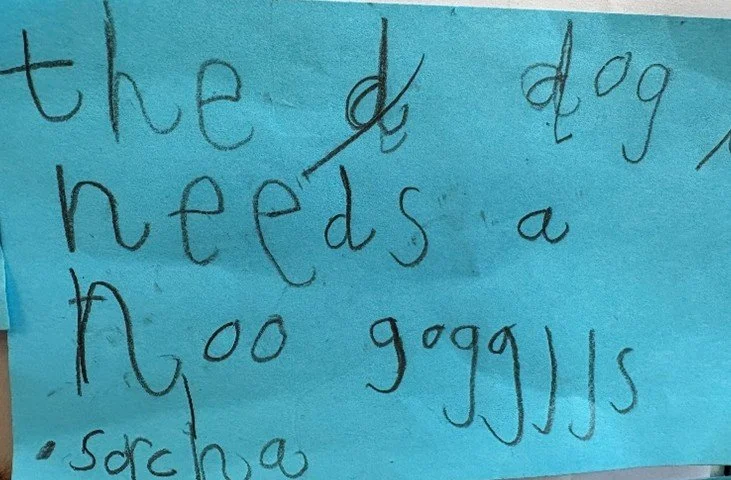 the dog
needs a
noo goggjjs
sorcha